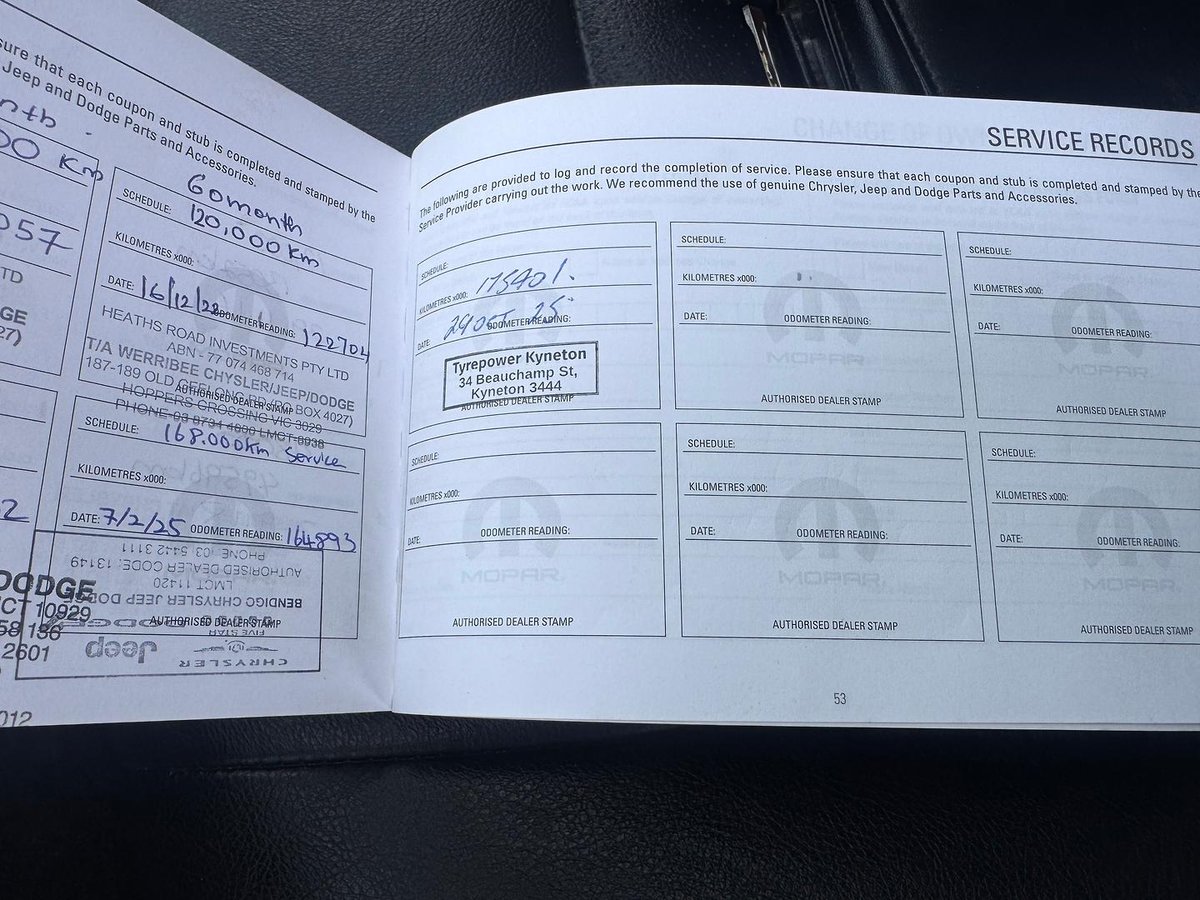 sure that each coupon and stub is completed and stamped by the
Jeep and Dodge Parts and Accessories.
00 Km
057
TD
GE
27)
SCHEDULE:
60month
120,000 Km
KILOMETRES x000:
DATE: 16/12/
ODOMETER READING: 122704
HEATHS ROAD INVESTMENTS PTY LTD
ABN - 77 074 468 714
T/A WERRIBEE CHYSLER/JEEP/DODGE
187-189 OLD GEELONG RD (PO BOX 4027)
AUTHORISED DEALER STAMP
HOPPERS CROSSING VIC 3029
PHONE-03 8734 4800 LMCT-8936
SCHEDULE: 168.000Km Service
KILOMETRES x000:
DATE: 7/2/25 ODOMETER READING: 164893
PHONE: 03 5442 3111
AUTHORISED DEALER CODE: 13149
LMCT 11420
BENDIGO CHRYSLER JEEP DODGE
AUTHORISED DEALER STAMP
FIVE STAR
Jeep
CHRYSLER
DODGE
CT 10929
58 136
2601
012
SERVICE RECORDS
The following are provided to log and record the completion of service. Please ensure that each coupon and stub is completed and stamped by the
Service Provider carrying out the work. We recommend the use of genuine Chrysler, Jeep and Dodge Parts and Accessories.
SCHEDULE:
KILOMETRES x000: 175401.
DATE: 29 Oct 25
ODOMETER READING:
Tyrepower Kyneton
34 Beauchamp St,
Kyneton 3444
AUTHORISED DEALER STAMP
SCHEDULE:
KILOMETRES x000:
DATE: ODOMETER READING:
MOPAR
AUTHORISED DEALER STAMP
SCHEDULE:
KILOMETRES x000:
DATE: ODOMETER READING:
MOPAR
AUTHORISED DEALER STAMP
SCHEDULE:
KILOMETRES x000:
DATE: ODOMETER READING:
MOPAR
AUTHORISED DEALER STAMP
SCHEDULE:
KILOMETRES x000:
DATE: ODOMETER READING:
MOPAR
AUTHORISED DEALER STAMP
SCHEDULE:
KILOMETRES x000:
DATE: ODOMETER READING:
MOPAR
AUTHORISED DEALER STAMP
53